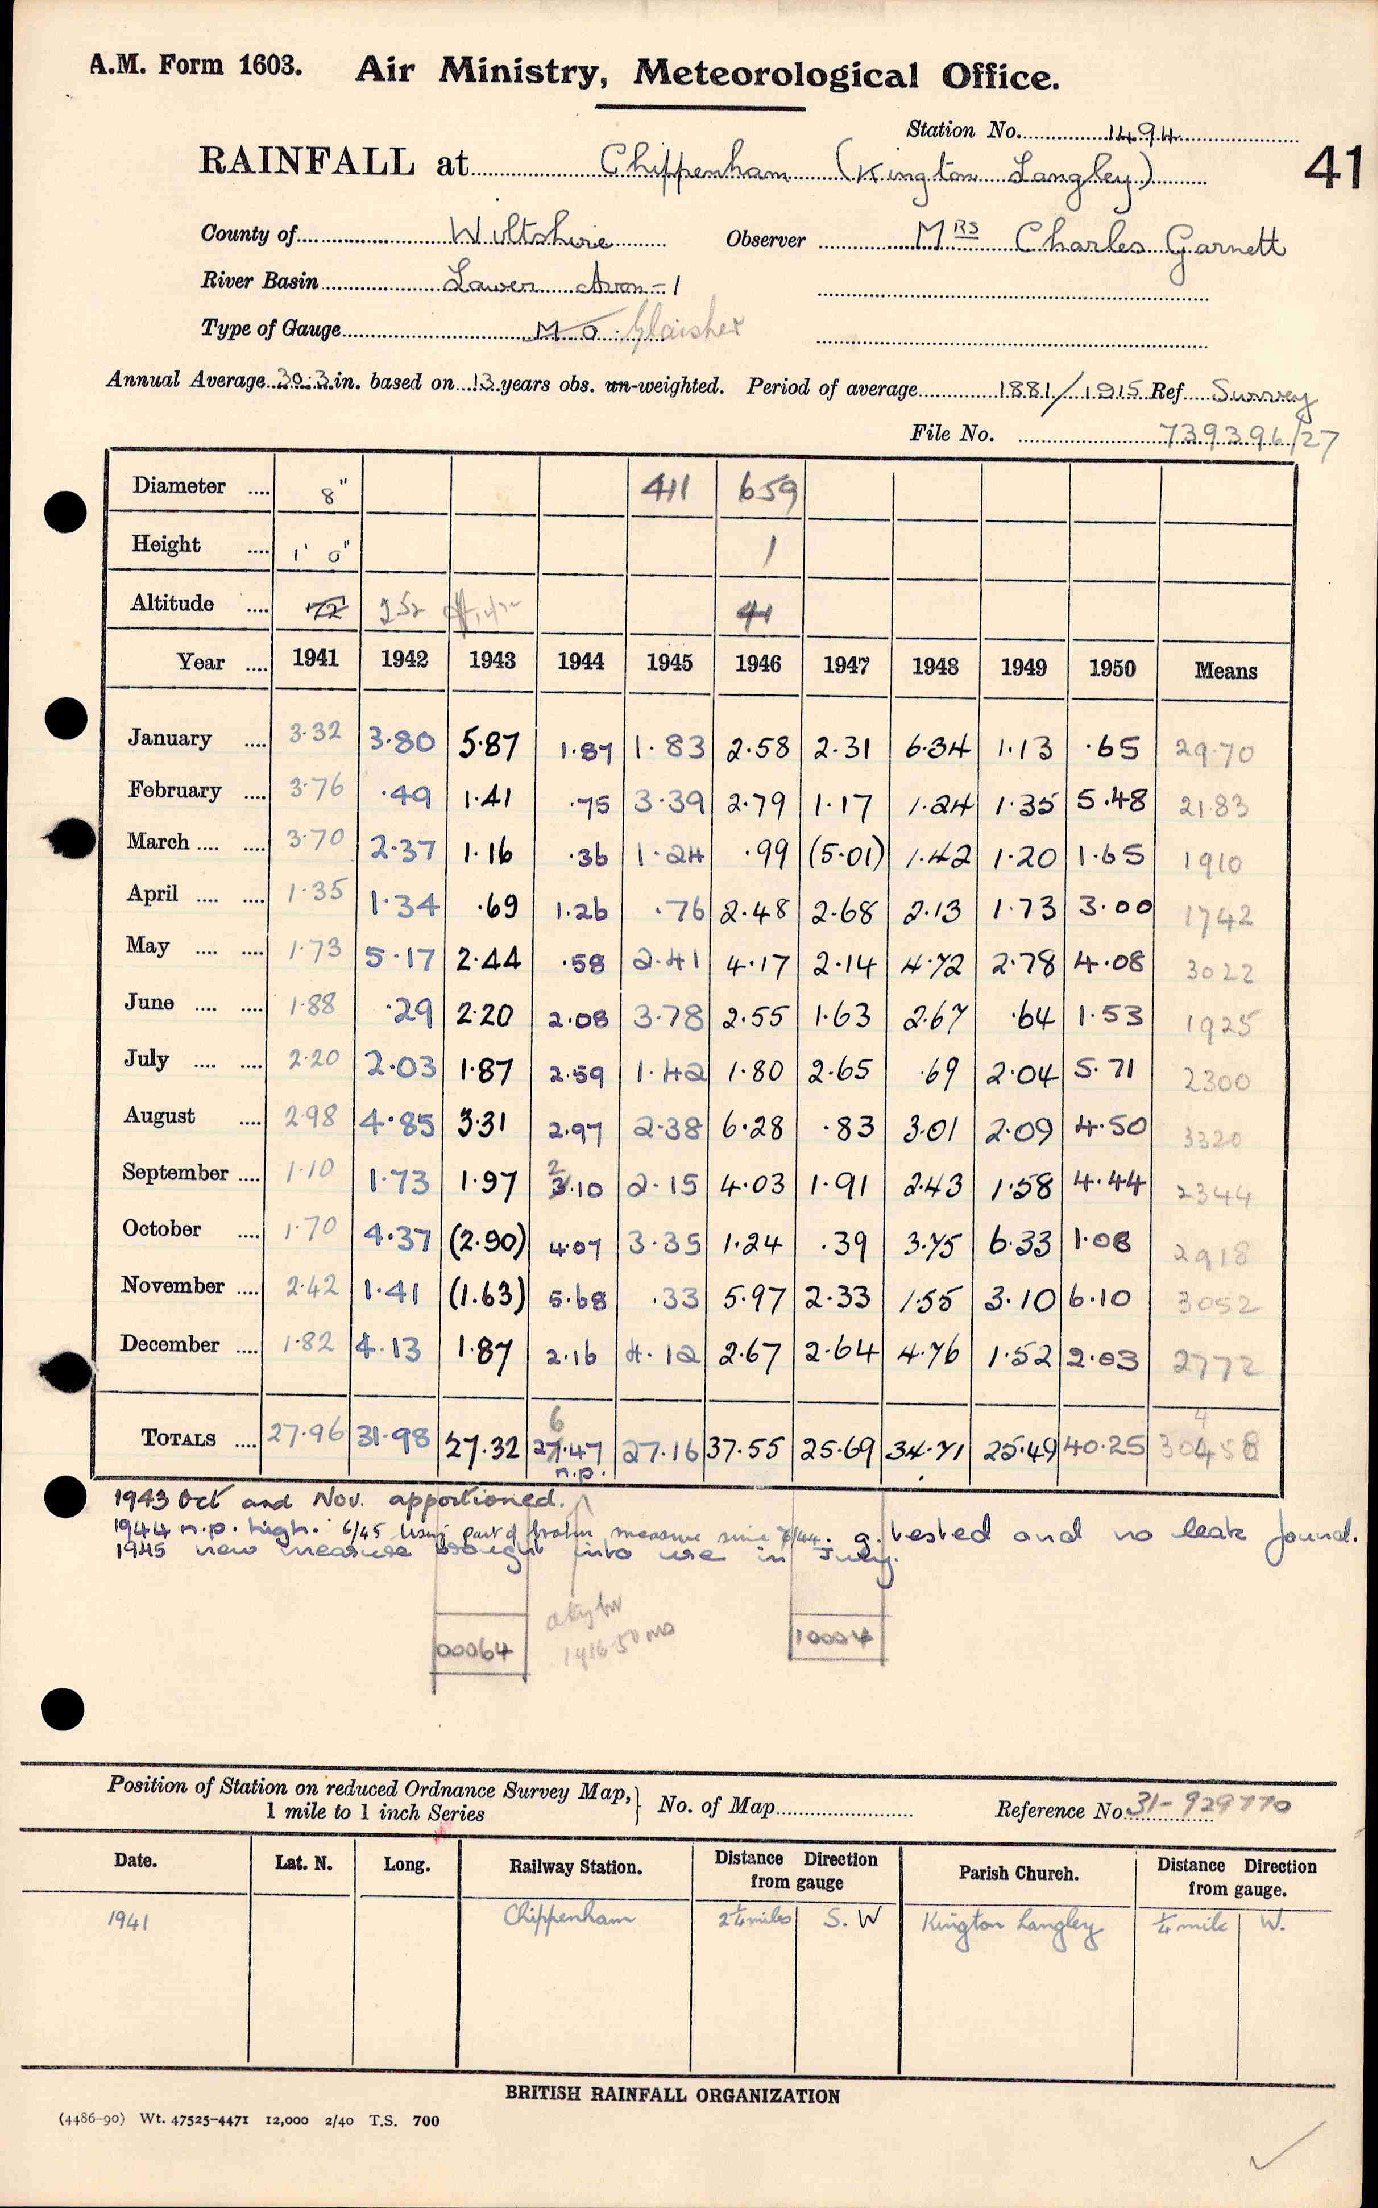 A.M. Form 1603. Air Ministry, Meteorological Office.
Station No. 1494
RAINFALL at Chippenham (Kington Langley) 41
County of Wiltshire Observer Mrs Charles Garnett
River Basin Lower Avon-1
Type of Gauge M O. Glaisher
Annual Average 30.3 in. based on 13 years obs. un-weighted. Period of average 1881/1915 Ref Survey
File No. 739396/27
Diameter .... 8" 411 659
Height .... 1' 0" 1
Altitude .... 72 41
Year .... 1941 1942 1943 1944 1945 1946 1947 1948 1949 1950 Means
January .... 3.32 3.80 5.87 1.87 1.83 2.58 2.31 6.34 1.13 .65 29.70
February .... 3.76 .49 1.41 .75 3.39 2.79 1.17 1.24 1.35 5.48 21.83
March .... .... 3.70 2.37 1.16 .36 1.24 .99 (5.01) 1.42 1.20 1.65 1910
April .... .... 1.35 1.34 .69 1.26 .76 2.48 2.68 2.13 1.73 3.00 1742
May .... .... 1.73 5.17 2.44 .58 2.41 4.17 2.14 4.72 2.78 4.08 3022
June .... .... 1.88 .29 2.20 2.08 3.78 2.55 1.63 2.67 .64 1.53 1925
July .... .... 2.20 2.03 1.87 2.59 1.42 1.80 2.65 .69 2.04 5.71 2300
August .... 2.98 4.85 3.31 2.97 2.38 6.28 .83 3.01 2.09 4.50 3320
September .... 1.10 1.73 1.97 2 3.10 2.15 4.03 1.91 2.43 1.58 4.44 2344
October .... 1.70 4.37 (2.90) 4.07 3.35 1.24 .39 3.75 6.33 1.08 2918
November .... 2.42 1.41 (1.63) 5.68 .33 5.97 2.33 1.55 3.10 6.10 3052
December .... 1.82 4.13 1.87 2.16 4.12 2.67 2.64 4.76 1.52 2.03 2772
6 4
TOTALS .... 27.96 31.98 27.32 27.47 27.16 37.55 25.69 34.71 25.49 40.25 30458
n.p.
1943 Oct and Nov. apportioned.
1944 n.p. high. 6/45 Using part of broken measure since 7/44. g. tested and no leak found.
1945 new measure brought into use in July.
00064 10004
Position of Station on reduced Ordnance Survey Map,
1 mile to 1 inch Series
No. of Map Reference No 31-929770
Date. Lat. N. Long. Railway Station. Distance Direction from gauge Parish Church. Distance Direction from gauge.
1941 Chippenham 2¼ miles S. W Kington Langley ¼ mile W.
BRITISH RAINFALL ORGANIZATION
(4486-90) Wt. 47525-4471 12,000 2/40 T.S. 700